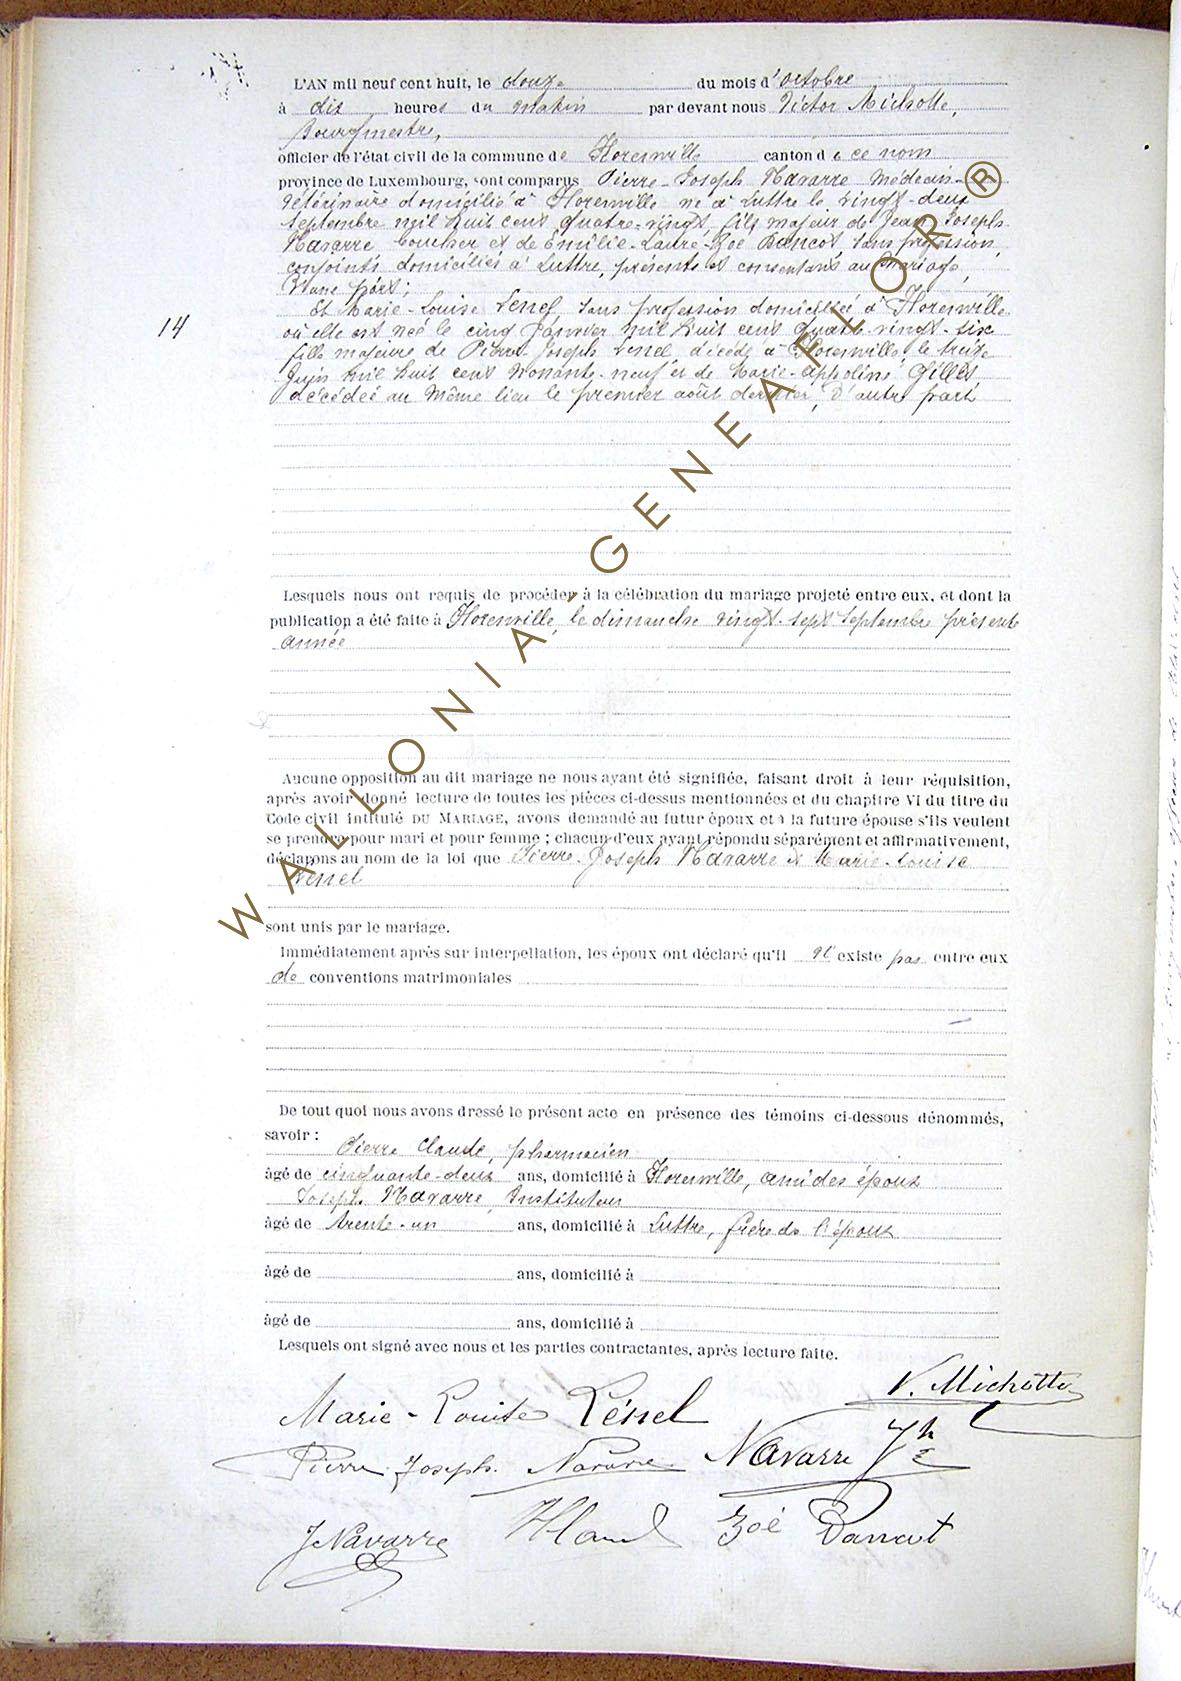 L'AN mil neuf cent huit, le douze du mois d'octobre
à dix heures du matin par devant nous Victor Michotte,
Bourgmestre,
officier de l'état civil de la commune de Florenville canton de ce nom
province de Luxembourg, sont comparus Pierre-Joseph Navarre Médecin-
Vétérinaire domicilié à Florenville né à Luttre le vingt-deux
Septembre mil huit cent quatre-vingt, fils majeur de Jean-Joseph
Navarre boucher et de Emilie-Laure-Zoé Dancot, sans profession,
conjoints domiciliés à Luttre, présents et consentans au mariage,
d'une part;
Et Marie-Louise Lenel, sans profession domiciliée à Florenville
où elle est née le cinq Janvier mil huit cent quatre-vingt-six
fille majeure de Pierre-Joseph Lenel, décédé à Florenville, le treize
Juin mil huit cent nonante-neuf et de Marie-Appoline Gilles
décédée au même lieu le premier août dernier, d'autre part
14
Lesquels nous ont requis de procéder à la célébration du mariage projeté entre eux, et dont la
publication a été faite à Florenville, le dimanche vingt-sept septembre présente
année
Aucune opposition au dit mariage ne nous ayant été signifiée, faisant droit à leur réquisition,
après avoir donné lecture de toutes les pièces ci-dessus mentionnées et du chapitre VI du titre du
Code civil intitulé DU MARIAGE, avons demandé au futur époux et à la future épouse s'ils veulent
se prendre pour mari et pour femme ; chacun d'eux ayant répondu séparément et affirmativement,
déclarons au nom de la loi que Pierre-Joseph Navarre & Marie-Louise
Lenel
sont unis par le mariage.
Immédiatement après sur interpellation, les époux ont déclaré qu'il n'existe pas entre eux
de conventions matrimoniales
De tout quoi nous avons dressé le présent acte en présence des témoins ci-dessous dénommés,
savoir :
Pierre Claude, pharmacien
âgé de cinquante-deux ans, domicilié à Florenville, ami des époux
Joseph Navarre, Instituteur
âgé de trente-un ans, domicilié à Luttre, frère de l'époux
âgé de ans, domicilié à
âgé de ans, domicilié à
Lesquels ont signé avec nous et les parties contractantes, après lecture faite.
V. Michotte
Marie-Louise Lénel
Pierre Joseph Navarre Navarre Jh
J Navarre Zoé Dancot
WALLONIA-GENEAFLOR ®